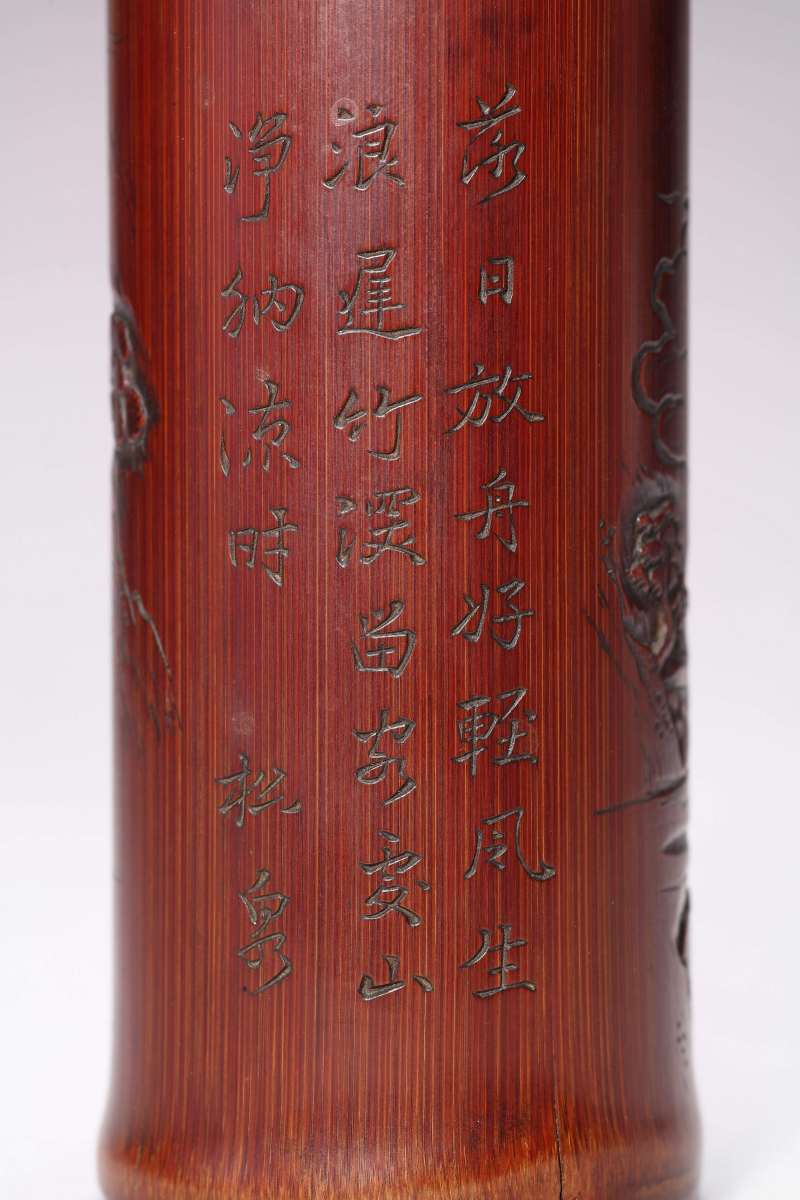 落日放舟好輕風生
浪遲竹深留客處山
淨納涼時
松泉